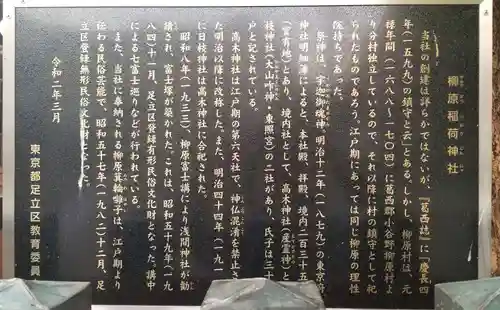 柳原稲荷神社
当社の創建は詳らかではないが、『葛西誌』に「慶長四
年(一五九九)の鎮守と云」とある。しかし、柳原村は、元
禄年間(一六八八~一七〇四)に葛西郡小谷野柳原村よ
り分村独立しているので、それ以降に村の鎮守として祀
られたものであろう。江戸期にあっては同じ柳原の理性
院持ちであった。
祭神は、宇迦御魂神。明治十二年(一八七九)の東京府
神社明細簿によると、本社殿、拝殿、境内二百三十五
(官有地)とあり、境内社として、高木神社(産霊神)と
日枝神社(大山咋神、東照宮)の二社があり、氏子は三十
戸と記されている。
高木神社は江戸期の第六天社で、神仏混淆を禁止さ
た明治以降に改称した。また、明治四十四年(一九一
に日枝神社は高木神社に合祀された。
昭和八年(一九三三)、柳原富士講により浅間神社が勧
請され、富士塚が築かれた。これは、昭和五十九年(一九
八四)十一月、足立区登録有形民俗文化財となった。講中
による七富士巡りなどが行われている。
また、当社に奉納される柳原箕輪囃子は、江戸期より
伝わる民俗芸能で、昭和五十七年(一九八二)十二月、足
立区登録無形民俗文化財となった。
令和二年三月
東京都足立区教育委員